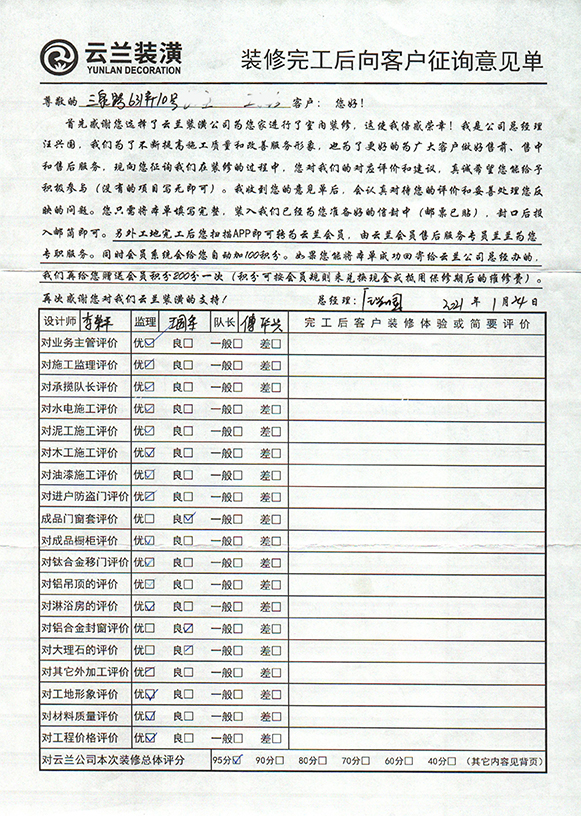 云兰装潢
YUNLAN DECORATION
装修完工后向客户征询意见单
尊敬的 三泉路631弄10号 客户： 您好！
首先感谢您选择了云兰装潢公司为您家进行了室内装修，这使我倍感荣幸！我是公司总经理
汪兴国，我们为了不断提高施工质量和改善服务形象，也为了更好的为广大客户做好售前、售中
和售后服务，现向您征询我们在装修的过程中，您对我们的对应评价和建议，真诚希望您能给予
积极参与（没有的项目写无即可）。我收到您的意见单后，会认真对待您的评价和妥善处理您反
映的问题。您只需将本单填写完整，装入我们已经为您准备好的信封中（邮票已贴），封口后投
入邮筒即可。另外工地完工后您扫描APP即可转为云兰会员，由云兰会员售后服务专员兰兰为您
专职服务。同时会员系统会给您自动加100积分。如果您能将本单成功回寄给云兰公司总经办的，
我们再给您赠送会员积分200分一次（积分可按会员规则来兑换现金或抵用保修期后的维修费）。
再次感谢您对我们云兰装潢的支持！ 总经理： 2021 年 1 月 24 日
设计师 监理 队长 完工后客户装修体验或简要评价
对业务主管评价 优☑ 良□ 一般□ 差□
对施工监理评价 优☑ 良□ 一般□ 差□
对承揽队长评价 优☑ 良□ 一般□ 差□
对水电施工评价 优☑ 良□ 一般□ 差□
对泥工施工评价 优☑ 良□ 一般□ 差□
对木工施工评价 优☑ 良□ 一般□ 差□
对油漆施工评价 优☑ 良□ 一般□ 差□
对进户防盗门评价 优☑ 良□ 一般□ 差□
成品门窗套评价 优□ 良☑ 一般□ 差□
对成品橱柜评价 优☑ 良□ 一般□ 差□
对钛合金移门评价 优☑ 良□ 一般□ 差□
对铝吊顶的评价 优☑ 良□ 一般□ 差□
对淋浴房的评价 优☑ 良□ 一般□ 差□
对铝合金封窗评价 优□ 良☑ 一般□ 差□
对大理石的评价 优□ 良☑ 一般□ 差□
对其它外加工评价 优☑ 良□ 一般□ 差□
对工地形象评价 优☑ 良□ 一般□ 差□
对材料质量评价 优☑ 良□ 一般□ 差□
对工程价格评价 优☑ 良□ 一般□ 差□
对云兰公司本次装修总体评分 95分☑ 90分□ 80分□ 70分□ 60分□ 40分□ （其它内容见背页）